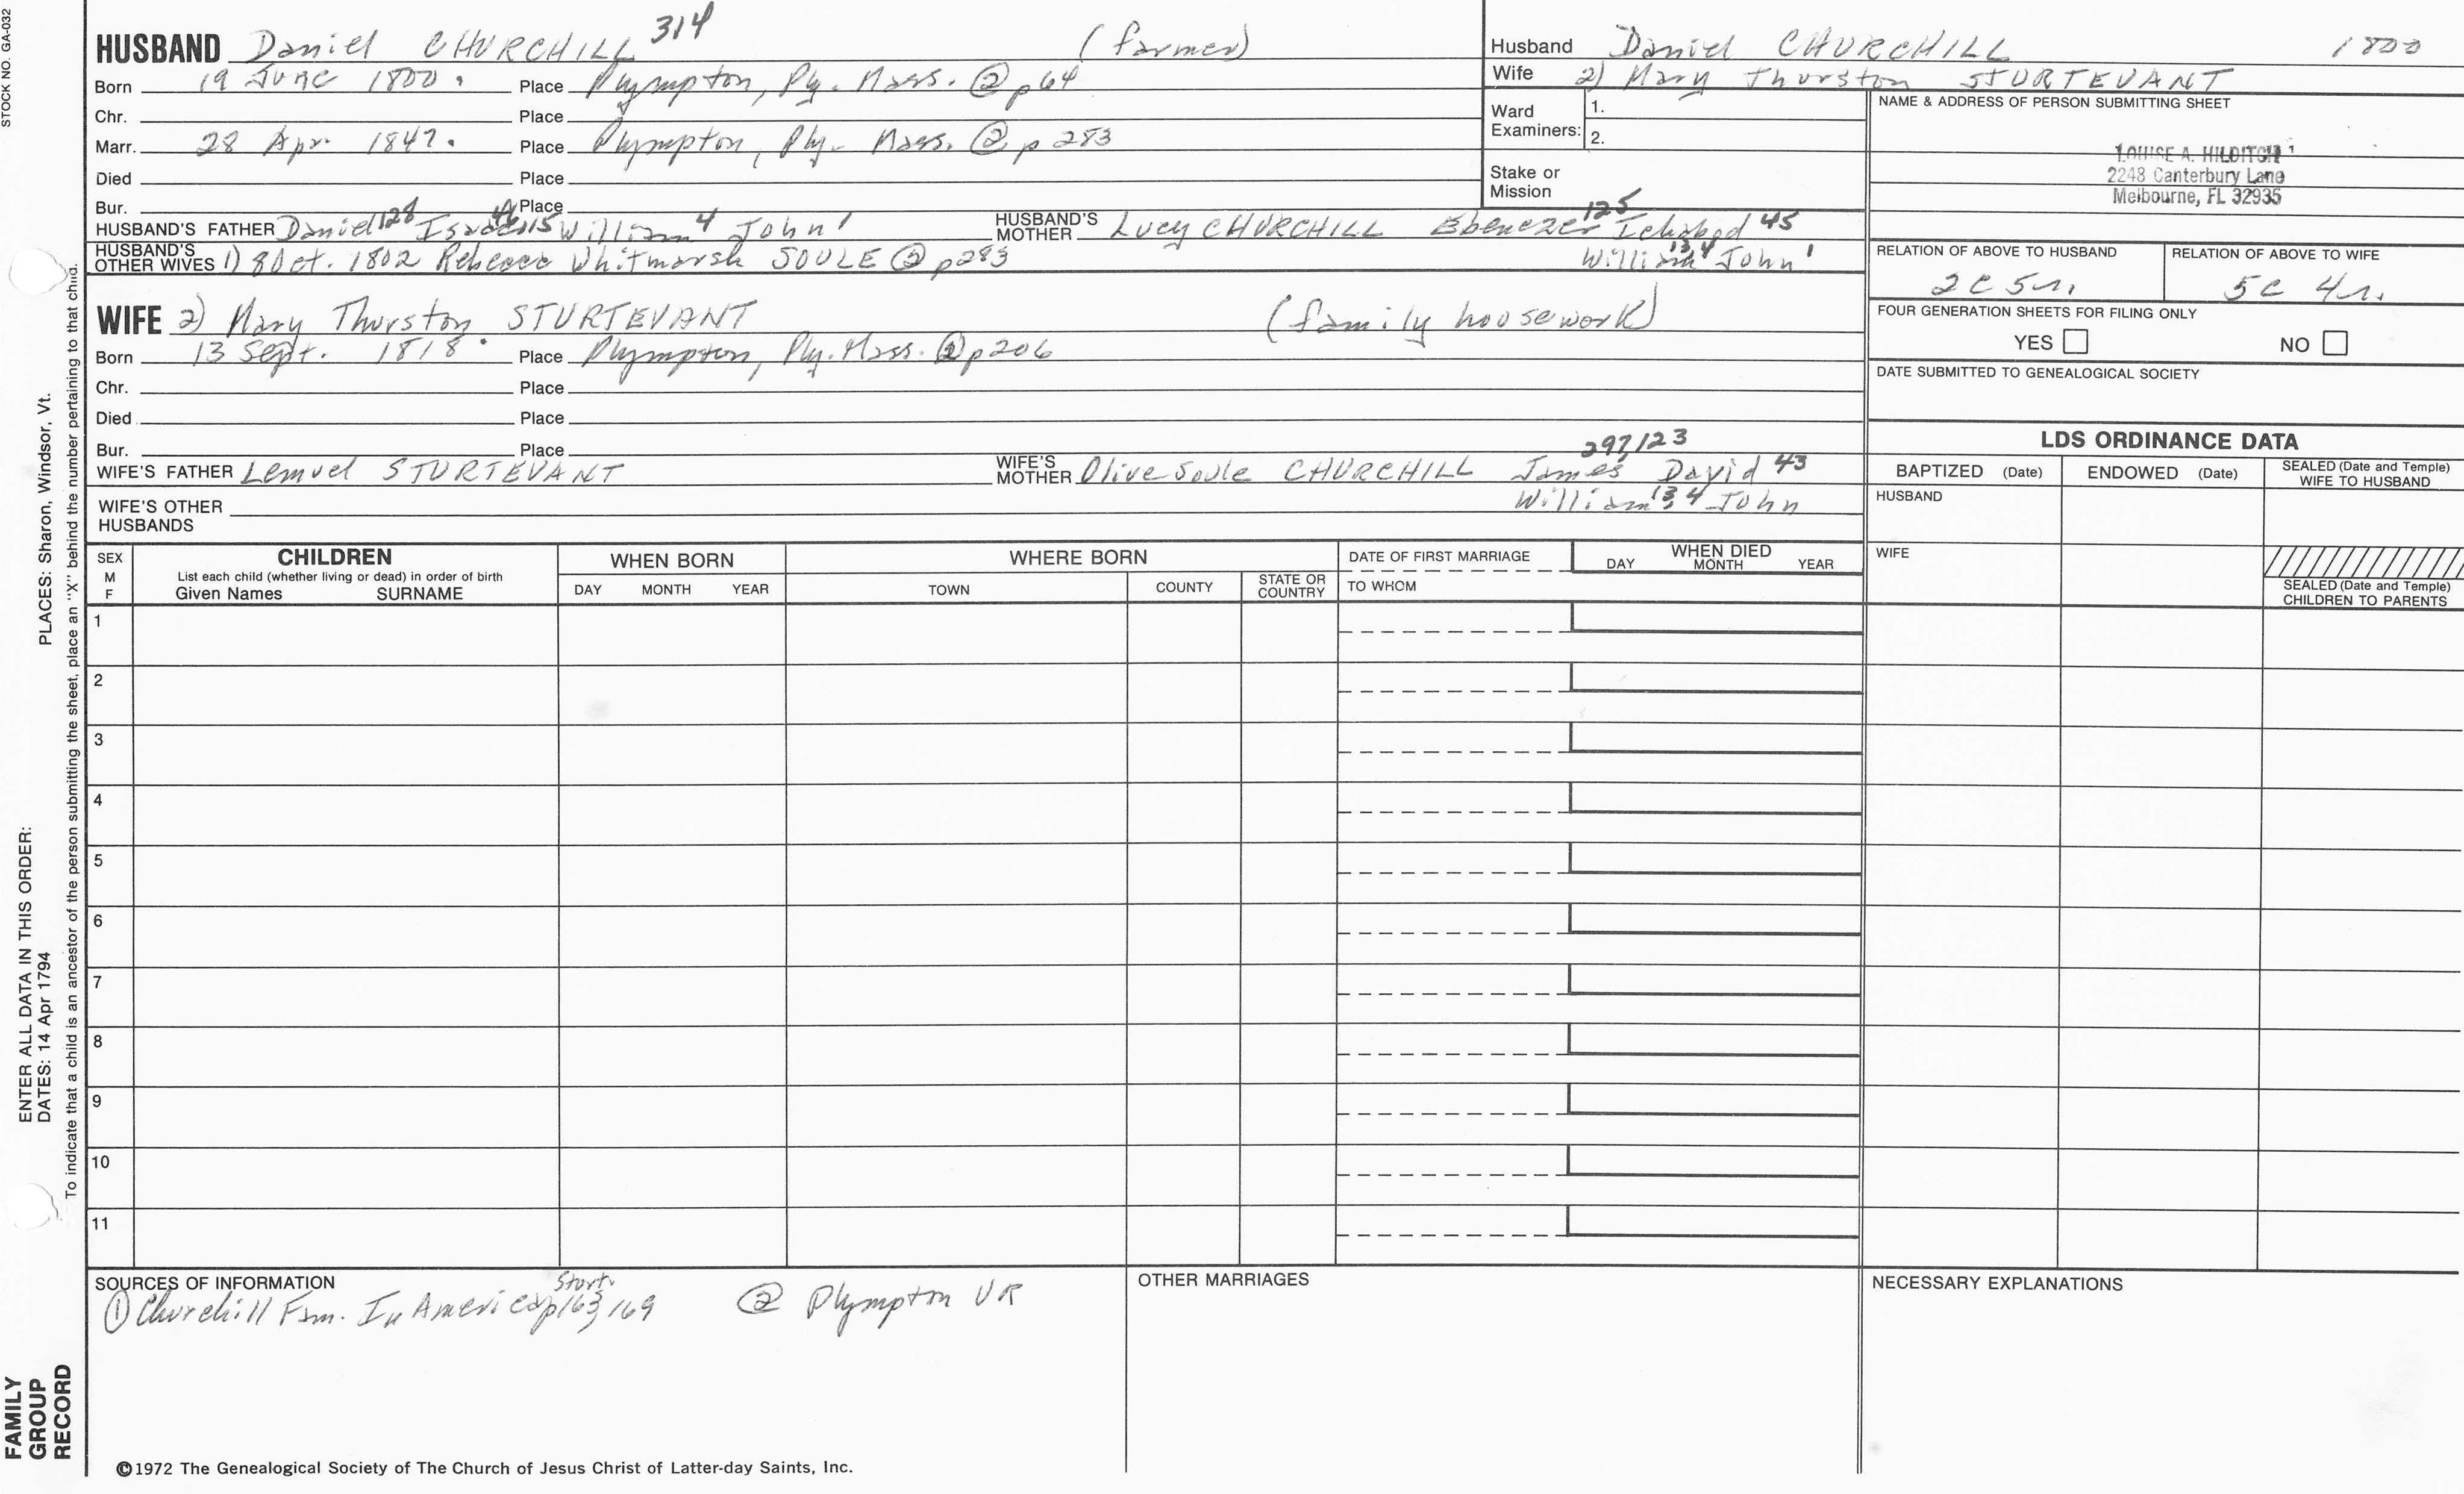 STOCK NO. GA-032
HUSBAND Daniel CHURCHILL 314 (farmer)
Born 19 June 1800. Place Plympton, Ply. Mass. @ p64
Chr. Place
Marr. 28 Apr. 1847. Place Plympton, Ply. Mass. @ p 283
Died Place
Bur. Place
HUSBAND'S FATHER Daniel 128 Isaac 46 15 William 4 John 1
HUSBAND'S MOTHER Lucy CHURCHILL Ebenezer 125 Ichabod 45
William 13 4 John 1
HUSBAND'S OTHER WIVES 1) 8 Oct. 1802 Rebecca Whitmarsh SOULE @ p283
WIFE 2) Mary Thurston STURTEVANT (family housework)
Born 13 Sept. 1818. Place Plympton, Ply. Mass. @ p206
Chr. Place
Died Place
Bur. Place
WIFE'S FATHER Lemuel STURTEVANT
WIFE'S MOTHER Olive Soule CHURCHILL James 297/123 David 43
William 13 4 John
WIFE'S OTHER
HUSBANDS
Husband Daniel CHURCHILL 1800
Wife 2) Mary Thurston STURTEVANT
Ward Examiners: 1.
2.
Stake or
Mission
NAME & ADDRESS OF PERSON SUBMITTING SHEET
LOUISE A. HILDITCH
2248 Canterbury Lane
Melbourne, FL 32935
RELATION OF ABOVE TO HUSBAND
2c 5r.
RELATION OF ABOVE TO WIFE
5c 4r.
FOUR GENERATION SHEETS FOR FILING ONLY
YES NO
DATE SUBMITTED TO GENEALOGICAL SOCIETY
LDS ORDINANCE DATA
BAPTIZED (Date) ENDOWED (Date) SEALED (Date and Temple)
WIFE TO HUSBAND
HUSBAND
WIFE
SEALED (Date and Temple)
CHILDREN TO PARENTS
SEX
M
F
CHILDREN
List each child (whether living or dead) in order of birth
Given Names SURNAME
WHEN BORN
DAY MONTH YEAR
WHERE BORN
TOWN COUNTY STATE OR COUNTRY
DATE OF FIRST MARRIAGE
TO WHOM
WHEN DIED
DAY MONTH YEAR
1
2
3
4
5
6
7
8
9
10
11
SOURCES OF INFORMATION
① Churchill Fam. In America p163, 169
Sturt.
@ Plympton VR
OTHER MARRIAGES
NECESSARY EXPLANATIONS
©1972 The Genealogical Society of The Church of Jesus Christ of Latter-day Saints, Inc.
ENTER ALL DATA IN THIS ORDER:
DATES: 14 Apr 1794 PLACES: Sharon, Windsor, Vt.
To indicate that a child is an ancestor of the person submitting the sheet, place an "X" behind the number pertaining to that child.
FAMILY
GROUP
RECORD